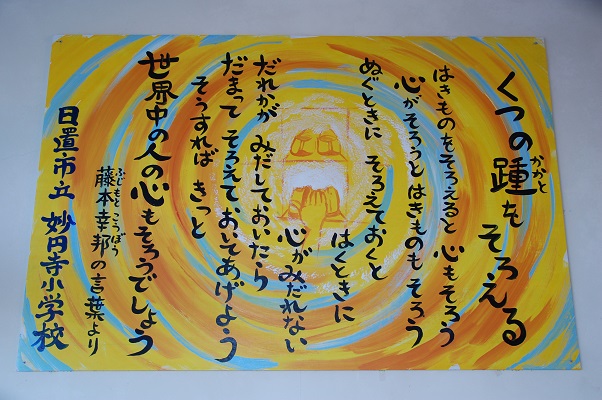 くつの踵をそろえる
かかと
はきものをそろえると心もそろう
心がそろうとはきものもそろう
ぬぐときに そろえておくと
はくときに
心がみだれない
だれかが みだしておいたら
だまって そろえておいてあげよう
そうすれば きっと
世界中の人の心もそろうでしょう
藤本幸邦の言葉より
ふじもと こうほう
日置市立 妙円寺小学校